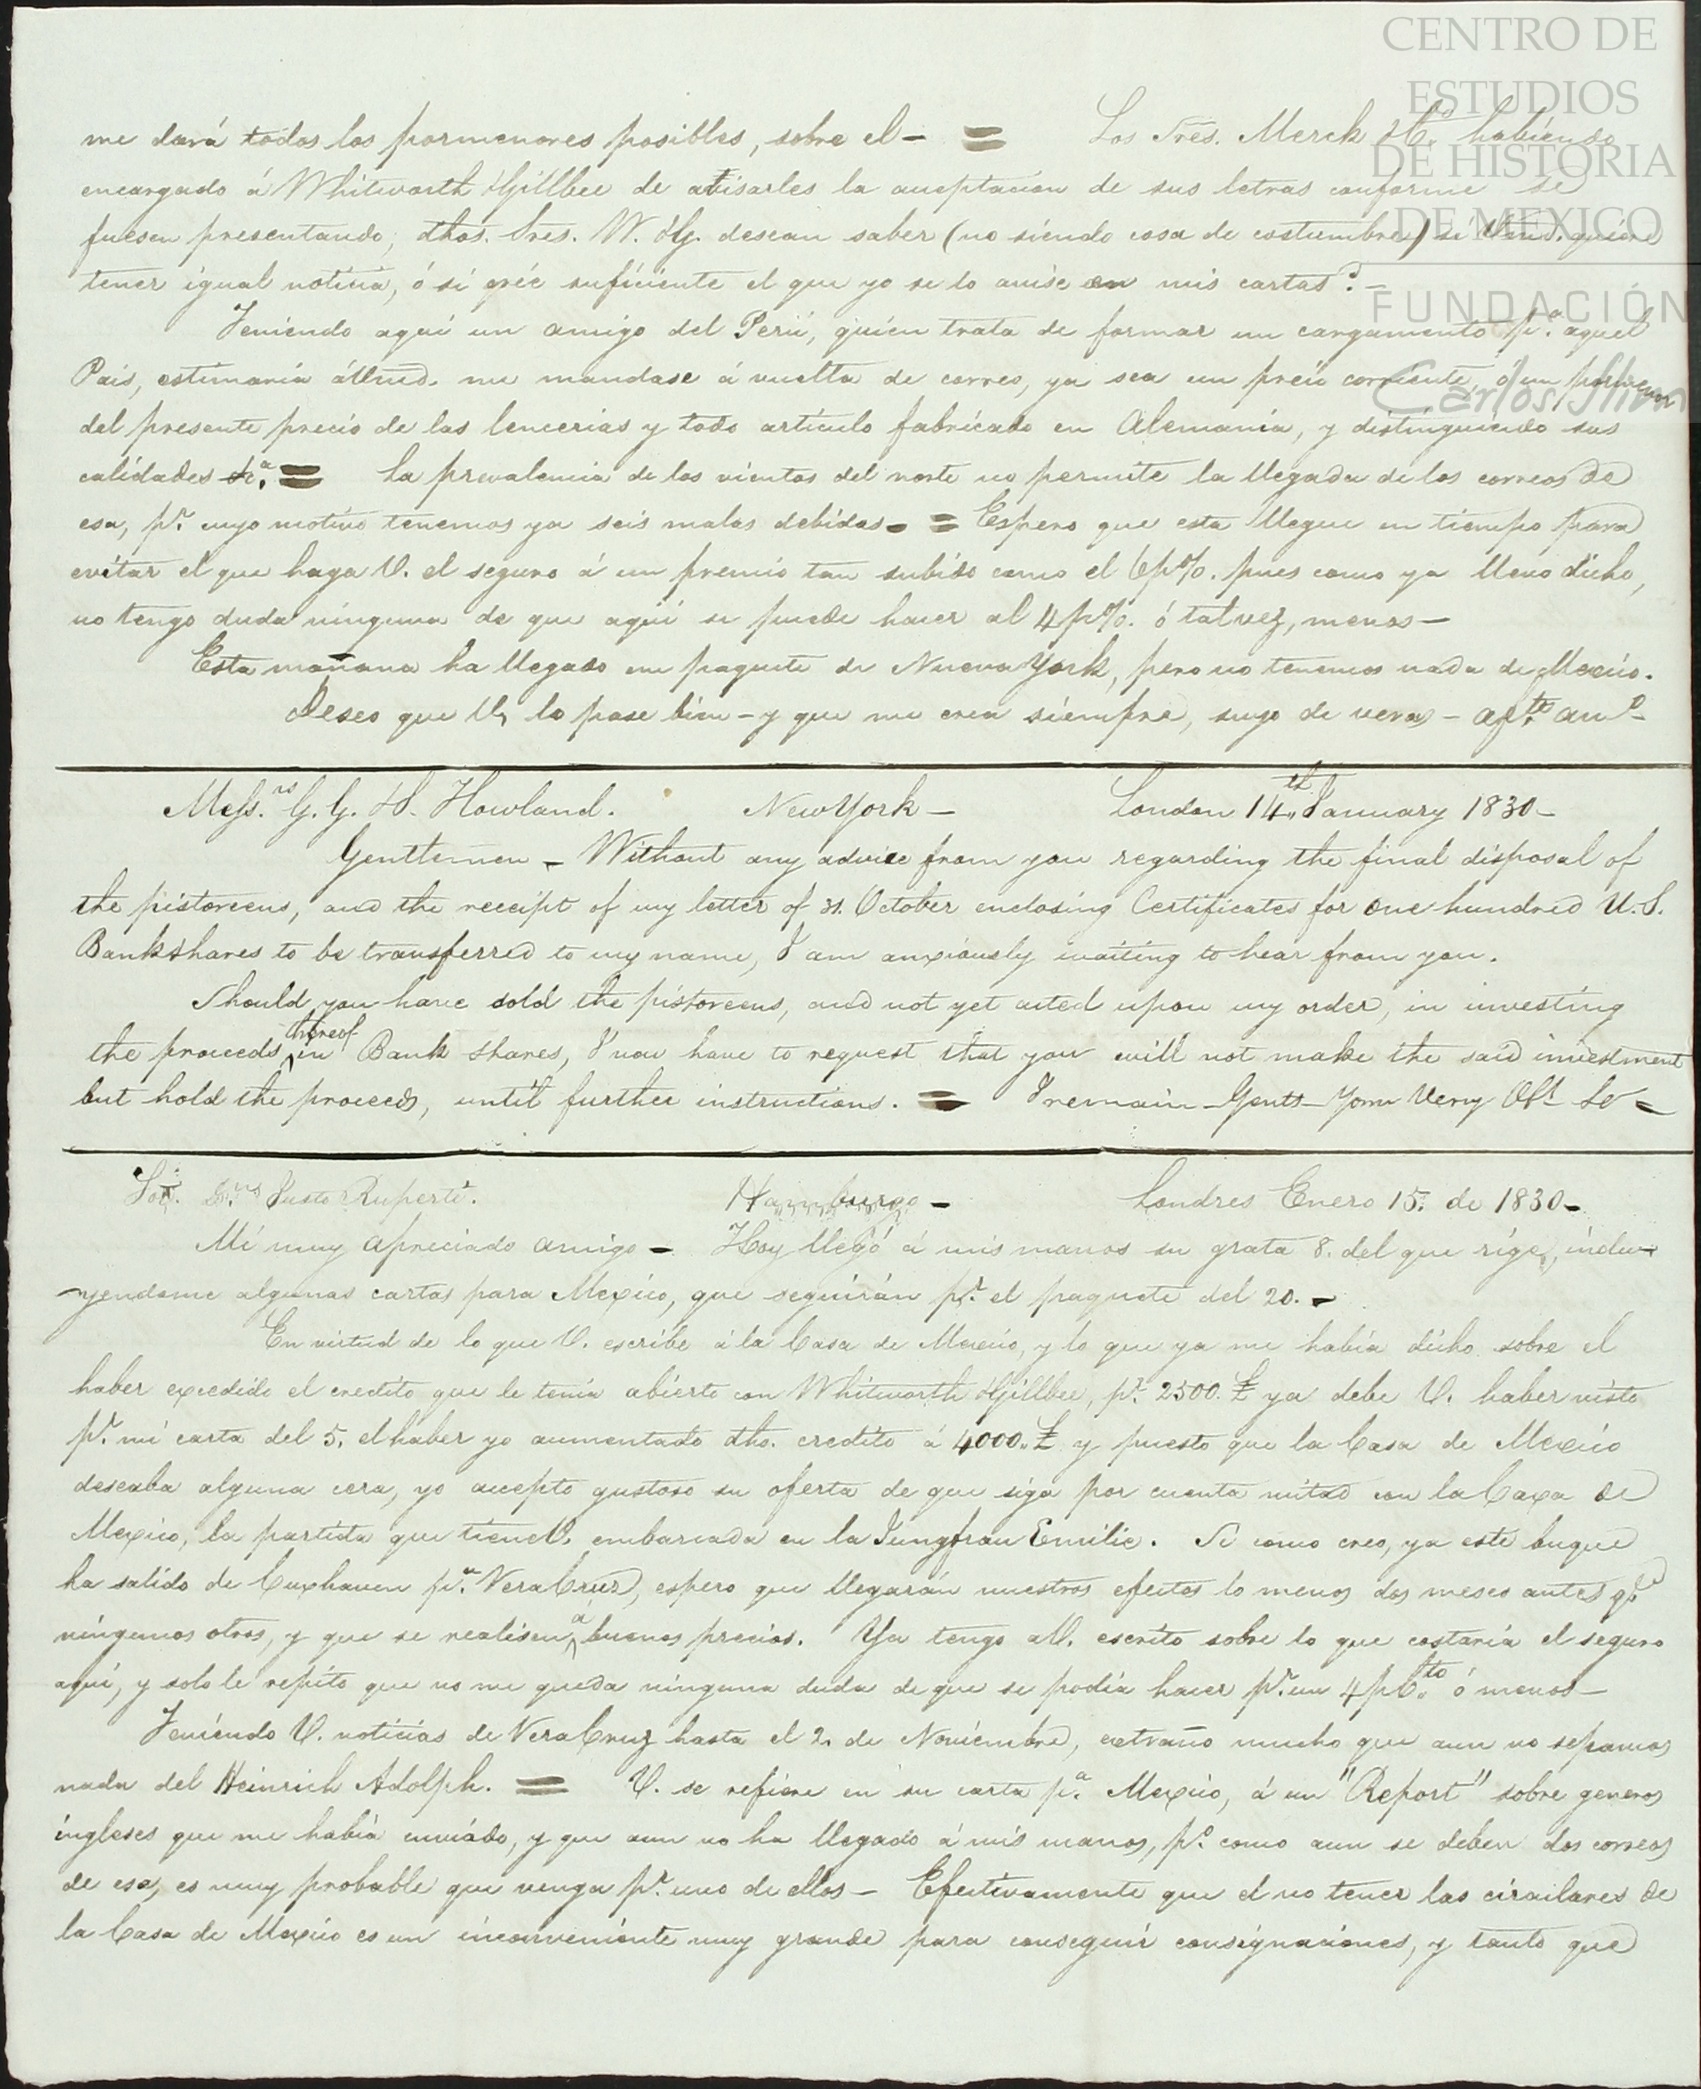 CENTRO DE
ESTUDIOS
DE HISTORIA
DE MEXICO
FUNDACIÓN
Carlos Slim
me dará todos los pormenores posibles, sobre el — = Los Sres. Merck &Co. habiendo
encargado á Whitworth &Gillbee de avisarles la aceptacion de sus letras conforme se
fuesen presentando; dhos. Sres. W. &G. desean saber (no siendo cosa de costumbre) si Vmd. quiere
tener igual noticia, ó si créé suficiente el que yo se lo avise en mis cartas? —
Teniendo aqui un amigo del Perú, quien trata de formar un cargamento pa. aquel
Pais, estimaria á Vmd. me mandase á vuelta de correo, ya sea un precio corriente, ó un pormenor
del presente precio de las lencerias y todo articulo fabricado en Alemania, y distinguiendo sus
calidades &ca. = La prevalencia de los vientos del norte no permite la llegada de los correos de
esa, pr. cuyo motivo tenemos ya seis malas debidas — = Espero que esta llegue en tiempo para
evitar el que haga V. el seguro á un premio tan subido como el 6 p%. pues como ya llevo dicho,
no tengo duda ninguna de que aqui se puede hacer al 4 p%. ó tal vez, menos —
Esta mañana ha llegado un paquete de Nueva York, pero no tenemos nada de Mexico.
Deseo que V. lo pase bien — y que me crea siempre, suyo de veras — afto. amo.
Messrs. G. G. &S. Howland. New York — London 14th. January 1830 —
Gentlemen — Without any advice from you regarding the final disposal of
the pistoreens, and the receipt of my letter of 31. October enclosing Certificates for one hundred U.S.
Bank shares to be transferred to my name, I am anxiously waiting to hear from you.
Should you have sold the pistoreens, and not yet acted upon my order, in investing
the proceeds thereof in Bank shares, I now have to request that you will not make the said investment
but hold the proceeds, until further instructions. = I remain — Gents — Your Very Obt. Se —
Sor. Dn. Justo Ruperti. Hamburgo — Londres Enero 15. de 1830 —
Mi muy apreciado amigo — Hoy llegó á mis manos su grata 8. del que rige, inclu-
yendome algunas cartas para Mexico, que seguirán pr. el paquete del 20. —
En virtud de lo que V. escribe á la Casa de Mexico, y lo que ya me habia dicho sobre el
haber excedido el credito que le tenia abierto con Whitworth &Gillbee, pr. 2500. £ ya debe V. haber visto
pr. mi carta del 5. el haber yo aumentado dho. credito á 4000. £ y puesto que la Casa de Mexico
deseaba alguna cera, yo accepto gustoso su oferta de que siga por cuenta mitad con la Casa de
Mexico, la partida que tiene V. embarcada en la Jungfrau Emilie. Si como creo, ya este buque
ha salido de Cuxhaven pa. Vera Cruz, espero que llegarán nuestros efectos lo menos dos meses antes qe.
ningunos otros, y que se realisen a buenos precios. Ya tengo a V. escrito sobre lo que costaria el seguro
aqui, y solo le repito que no me queda ninguna duda de que se podia hacer pr. un 4 pCto. ó menos —
Teniendo V. noticias de Vera Cruz hasta el 2. de Noviembre, extraño mucho que aun no sepamos
nada del Heinrich Adolph. = V. se refiere en su carta pa. Mexico, á un "Report" sobre generos
ingleses que me habia enviado, y que aun no ha llegado á mis manos, po. como aun se deben dos correos
de esa, es muy probable que venga pr. uno de ellos — Efectivamente que el no tener las circulares de
la Casa de Mexico es un inconveniente muy grande para conseguir consignaciones, y tanto que